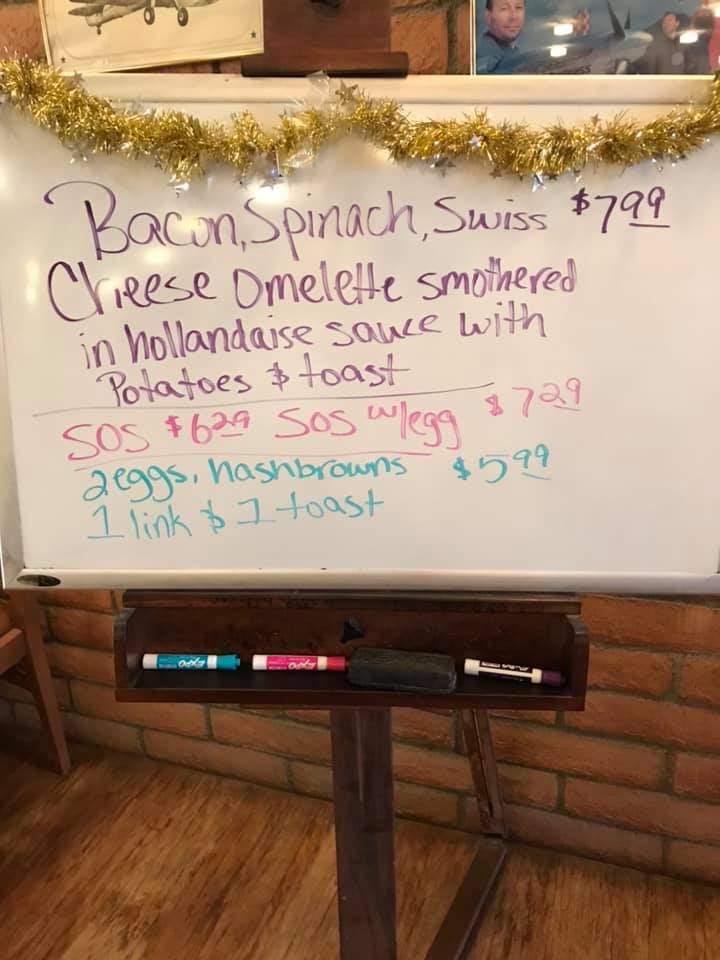 Bacon, Spinach, Swiss $7.99
Cheese Omelette smothered
in hollandaise sauce with
Potatoes & toast
SOS $6.29 SOS w/egg $7.29
2 eggs, hashbrowns $5.99
1 link & 1 toast
EXPO EXPO EXPO